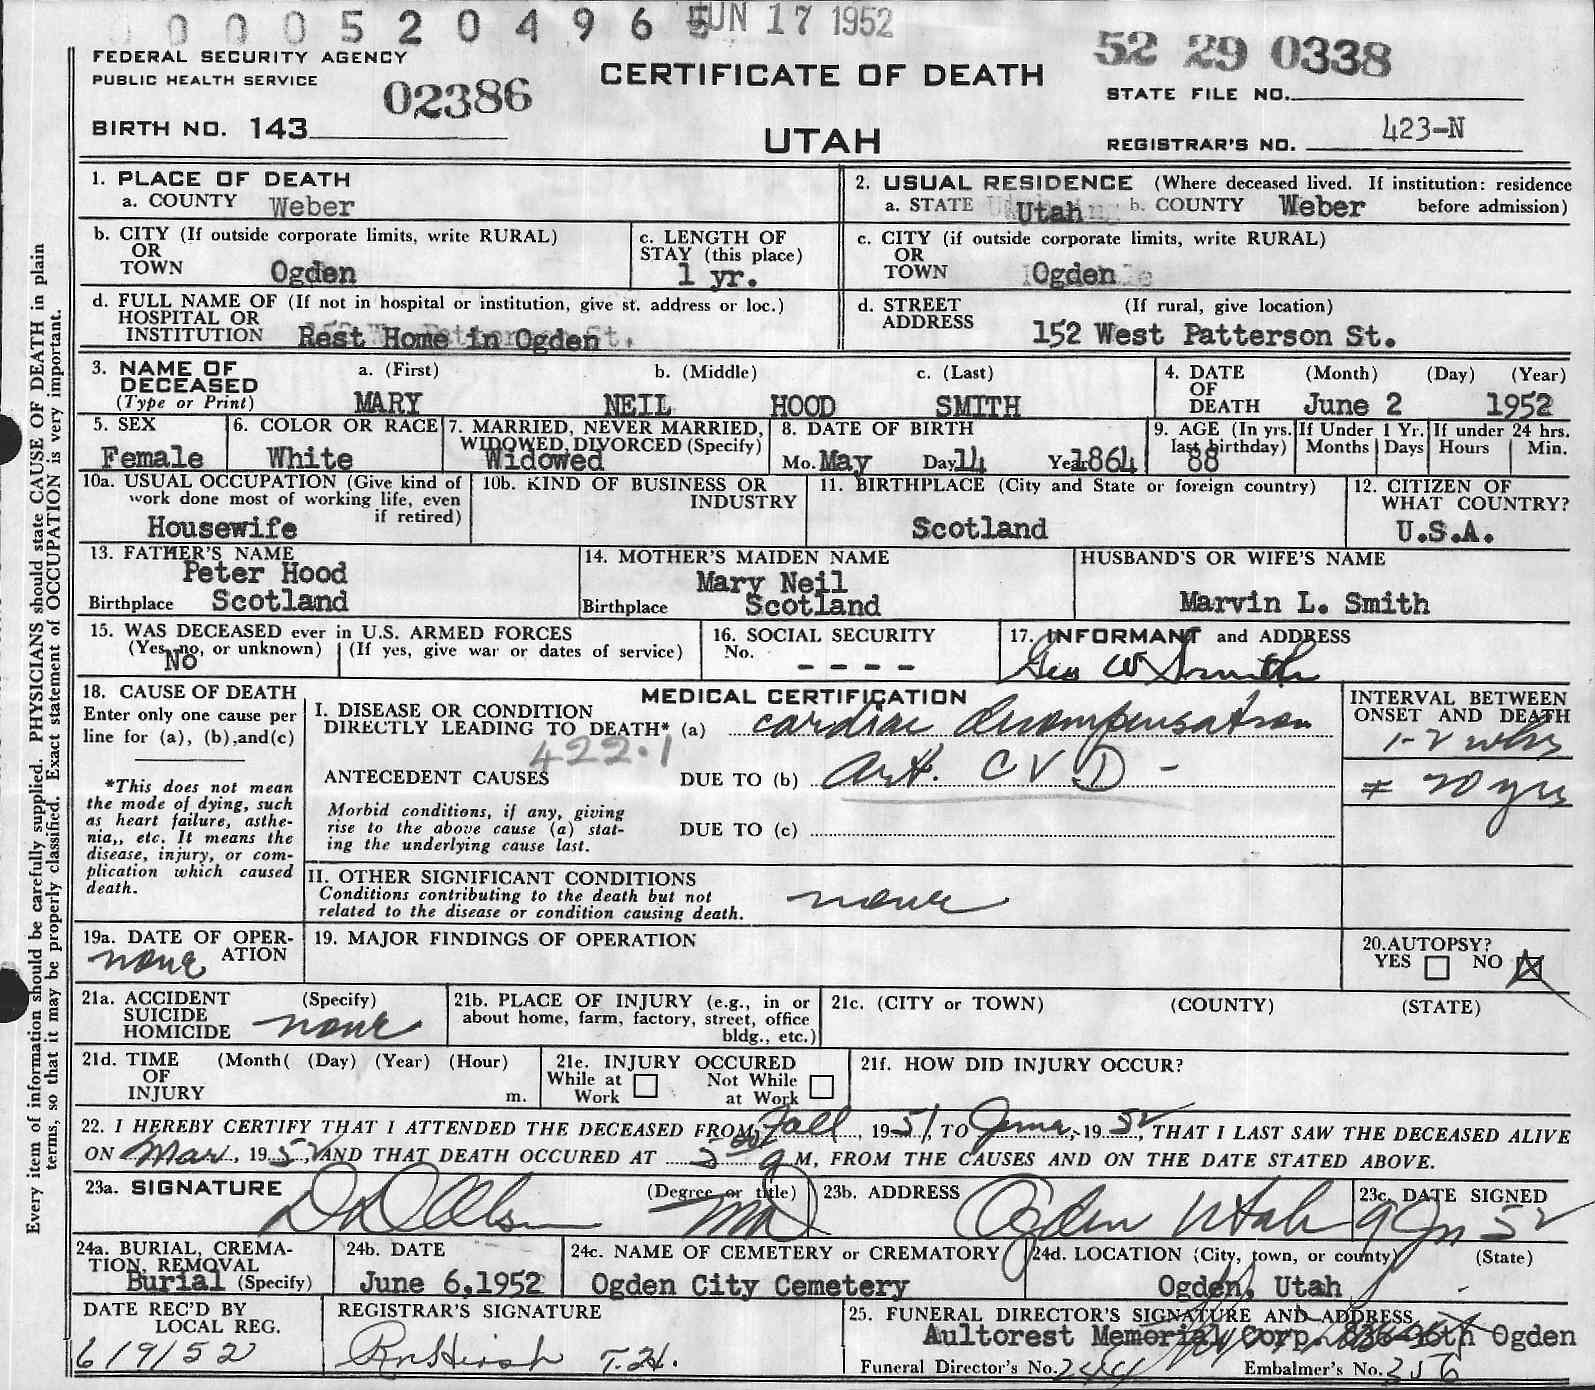 0005204965 JUN 17 1952
FEDERAL SECURITY AGENCY
PUBLIC HEALTH SERVICE
02386
BIRTH NO. 143
CERTIFICATE OF DEATH
UTAH
52 29 0338
STATE FILE NO.
REGISTRAR'S NO. 423-N
1. PLACE OF DEATH
a. COUNTY Weber
2. USUAL RESIDENCE (Where deceased lived. If institution: residence before admission)
a. STATE Utah b. COUNTY Weber
b. CITY (If outside corporate limits, write RURAL)
OR
TOWN Ogden
c. LENGTH OF
STAY (this place)
1 yr.
c. CITY (if outside corporate limits, write RURAL)
OR
TOWN Ogden
d. FULL NAME OF (If not in hospital or institution, give st. address or loc.)
HOSPITAL OR
INSTITUTION Rest Home in Ogden
d. STREET (If rural, give location)
ADDRESS 152 West Patterson St.
3. NAME OF
DECEASED
(Type or Print)
a. (First) b. (Middle) c. (Last)
MARY NEIL HOOD SMITH
4. DATE (Month) (Day) (Year)
OF
DEATH June 2 1952
5. SEX
Female
6. COLOR OR RACE
White
7. MARRIED, NEVER MARRIED,
WIDOWED, DIVORCED (Specify)
Widowed
8. DATE OF BIRTH
Mo. May Day 14 Year 1864
9. AGE (In yrs.
last birthday)
88
If Under 1 Yr.
Months Days
If under 24 hrs.
Hours Min.
10a. USUAL OCCUPATION (Give kind of
work done most of working life, even
if retired)
Housewife
10b. KIND OF BUSINESS OR
INDUSTRY
11. BIRTHPLACE (City and State or foreign country)
Scotland
12. CITIZEN OF
WHAT COUNTRY?
U.S.A.
13. FATHER'S NAME
Peter Hood
Birthplace Scotland
14. MOTHER'S MAIDEN NAME
Mary Neil
Birthplace Scotland
HUSBAND'S OR WIFE'S NAME
Marvin L. Smith
15. WAS DECEASED ever in U.S. ARMED FORCES
(Yes, no, or unknown) (If yes, give war or dates of service)
No
16. SOCIAL SECURITY
No. - - - -
17. INFORMANT and ADDRESS
Geo W Smith
18. CAUSE OF DEATH
Enter only one cause per
line for (a), (b), and (c)
*This does not mean
the mode of dying, such
as heart failure, asthe-
nia,, etc. It means the
disease, injury, or com-
plication which caused
death.
MEDICAL CERTIFICATION
I. DISEASE OR CONDITION
DIRECTLY LEADING TO DEATH* (a) cardiac decompensation
422.1
ANTECEDENT CAUSES DUE TO (b) Art. C V D -
Morbid conditions, if any, giving
rise to the above cause (a) stat-
ing the underlying cause last.
DUE TO (c)
INTERVAL BETWEEN
ONSET AND DEATH
1-2 wks
20 yrs
II. OTHER SIGNIFICANT CONDITIONS
Conditions contributing to the death but not
related to the disease or condition causing death.
none
19a. DATE OF OPER-
ATION
none
19. MAJOR FINDINGS OF OPERATION
20. AUTOPSY?
YES NO
21a. ACCIDENT (Specify)
SUICIDE
HOMICIDE none
21b. PLACE OF INJURY (e.g., in or
about home, farm, factory, street, office
bldg., etc.)
21c. (CITY or TOWN) (COUNTY) (STATE)
21d. TIME (Month( (Day) (Year) (Hour)
OF
INJURY m.
21e. INJURY OCCURED
While at Work Not While at Work
21f. HOW DID INJURY OCCUR?
22. I HEREBY CERTIFY THAT I ATTENDED THE DECEASED FROM Fall, 1951, TO June, 1952, THAT I LAST SAW THE DECEASED ALIVE
ON Mar., 1952, AND THAT DEATH OCCURED AT 5 00 a M, FROM THE CAUSES AND ON THE DATE STATED ABOVE.
23a. SIGNATURE (Degree or title) MD
23b. ADDRESS Ogden Utah
23c. DATE SIGNED
9 Jn 52
24a. BURIAL, CREMA-
TION, REMOVAL
Burial (Specify)
24b. DATE
June 6, 1952
24c. NAME OF CEMETERY or CREMATORY
Ogden City Cemetery
24d. LOCATION (City, town, or county) (State)
Ogden, Utah
DATE REC'D BY
LOCAL REG.
6/9/52
REGISTRAR'S SIGNATURE
25. FUNERAL DIRECTOR'S SIGNATURE AND ADDRESS
Aultorest Memorial Corp. 836-36th Ogden
Funeral Director's No. 244 Embalmer's No. 356
Every item of information should be carefully supplied. PHYSICIANS should state CAUSE OF DEATH in plain
terms, so that it may be properly classified. Exact statement of OCCUPATION is very important.